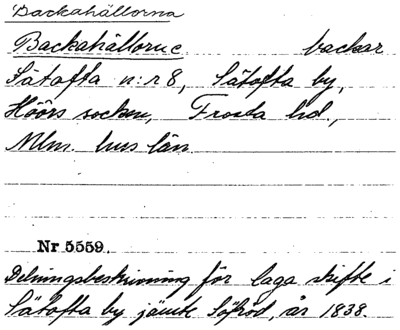 Backahällorna
Backahällorne backar
Sätofta n:r 8, Sätofta by,
Höörs socken, Frosta hd.,
Mlm. hus län.
Nr 5559.
Delningsbeskrivning för laga skifte i
Sätofta by jämte Söföröd, år 1838.